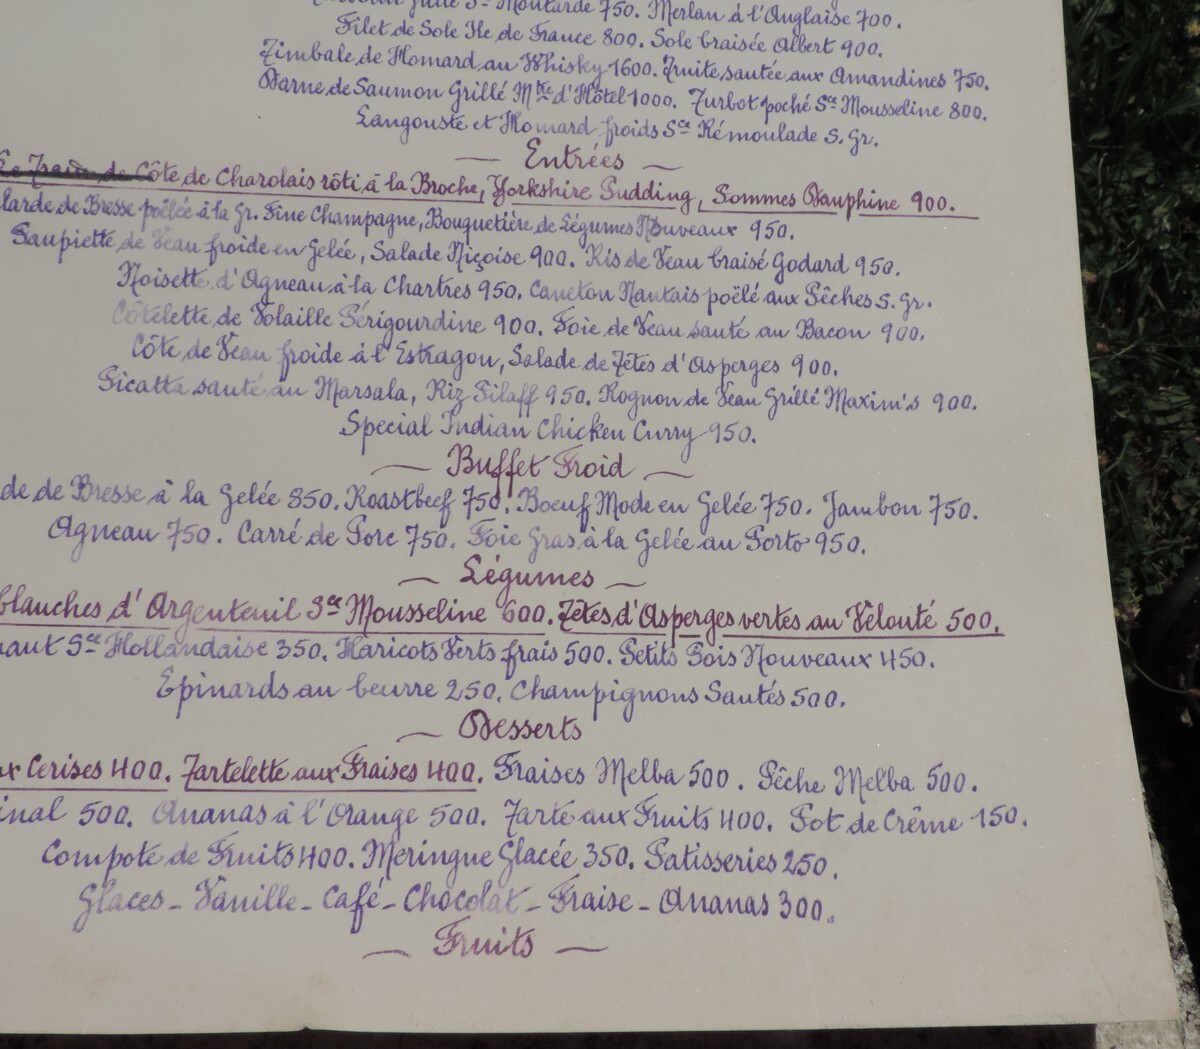 grillé Sce Moutarde 750. Merlan à l'Anglaise 700.
Filet de Sole Ile de France 800. Sole braisée Albert 900.
Timbale de Homard au Whisky 1600. Truite sautée aux Amandines 750.
Darne de Saumon Grillé Mtre d'Hôtel 1000. Turbot poché Sce Mousseline 800.
Langouste et Homard froids Sce Rémoulade S. Gr.
Entrées
Côte de Charolais rôti à la Broche, Yorkshire Pudding, Pommes Dauphine 900.
larde de Bresse poêlée à la Gr. Fine Champagne, Bouquetière de Légumes Nouveaux 950.
Paupiette de Veau froide en Gelée, Salade Niçoise 900. Ris de Veau braisé Godard 950.
Noisette d'Agneau à la Chartres 950. Caneton Nantais poëlé aux Pêches S. Gr.
Côtelette de Volaille Périgourdine 900. Foie de Veau sauté au Bacon 900.
Côte de Veau froide à l'Estragon, Salade de Têtes d'Asperges 900.
Picatta sauté au Marsala, Riz Pilaff 950. Rognon de Veau Grillé Maxim's 900.
Special Indian Chicken Curry 950.
Buffet Froid
de de Bresse à la Gelée 850. Roastbeef 750. Boeuf Mode en Gelée 750. Jambon 750.
Agneau 750. Carré de Porc 750. Foie Gras à la Gelée au Porto 950.
Légumes
blanches d'Argenteuil Sce Mousseline 600. Têtes d'Asperges vertes au Velouté 500.
haut Sce Hollandaise 350. Haricots Verts frais 500. Petits Pois Nouveaux 450.
Epinards au beurre 250. Champignons Sautés 500.
Desserts
ux Cerises 400. Tartelette aux Fraises 400. Fraises Melba 500. Pêche Melba 500.
inal 500. Ananas à l'Orange 500. Tarte aux Fruits 400. Pot de Crême 150.
Compote de Fruits 400. Meringue Glacée 350. Patisseries 250.
Glaces - Vanille - Café - Chocolat - Fraise - Ananas 300.
Fruits